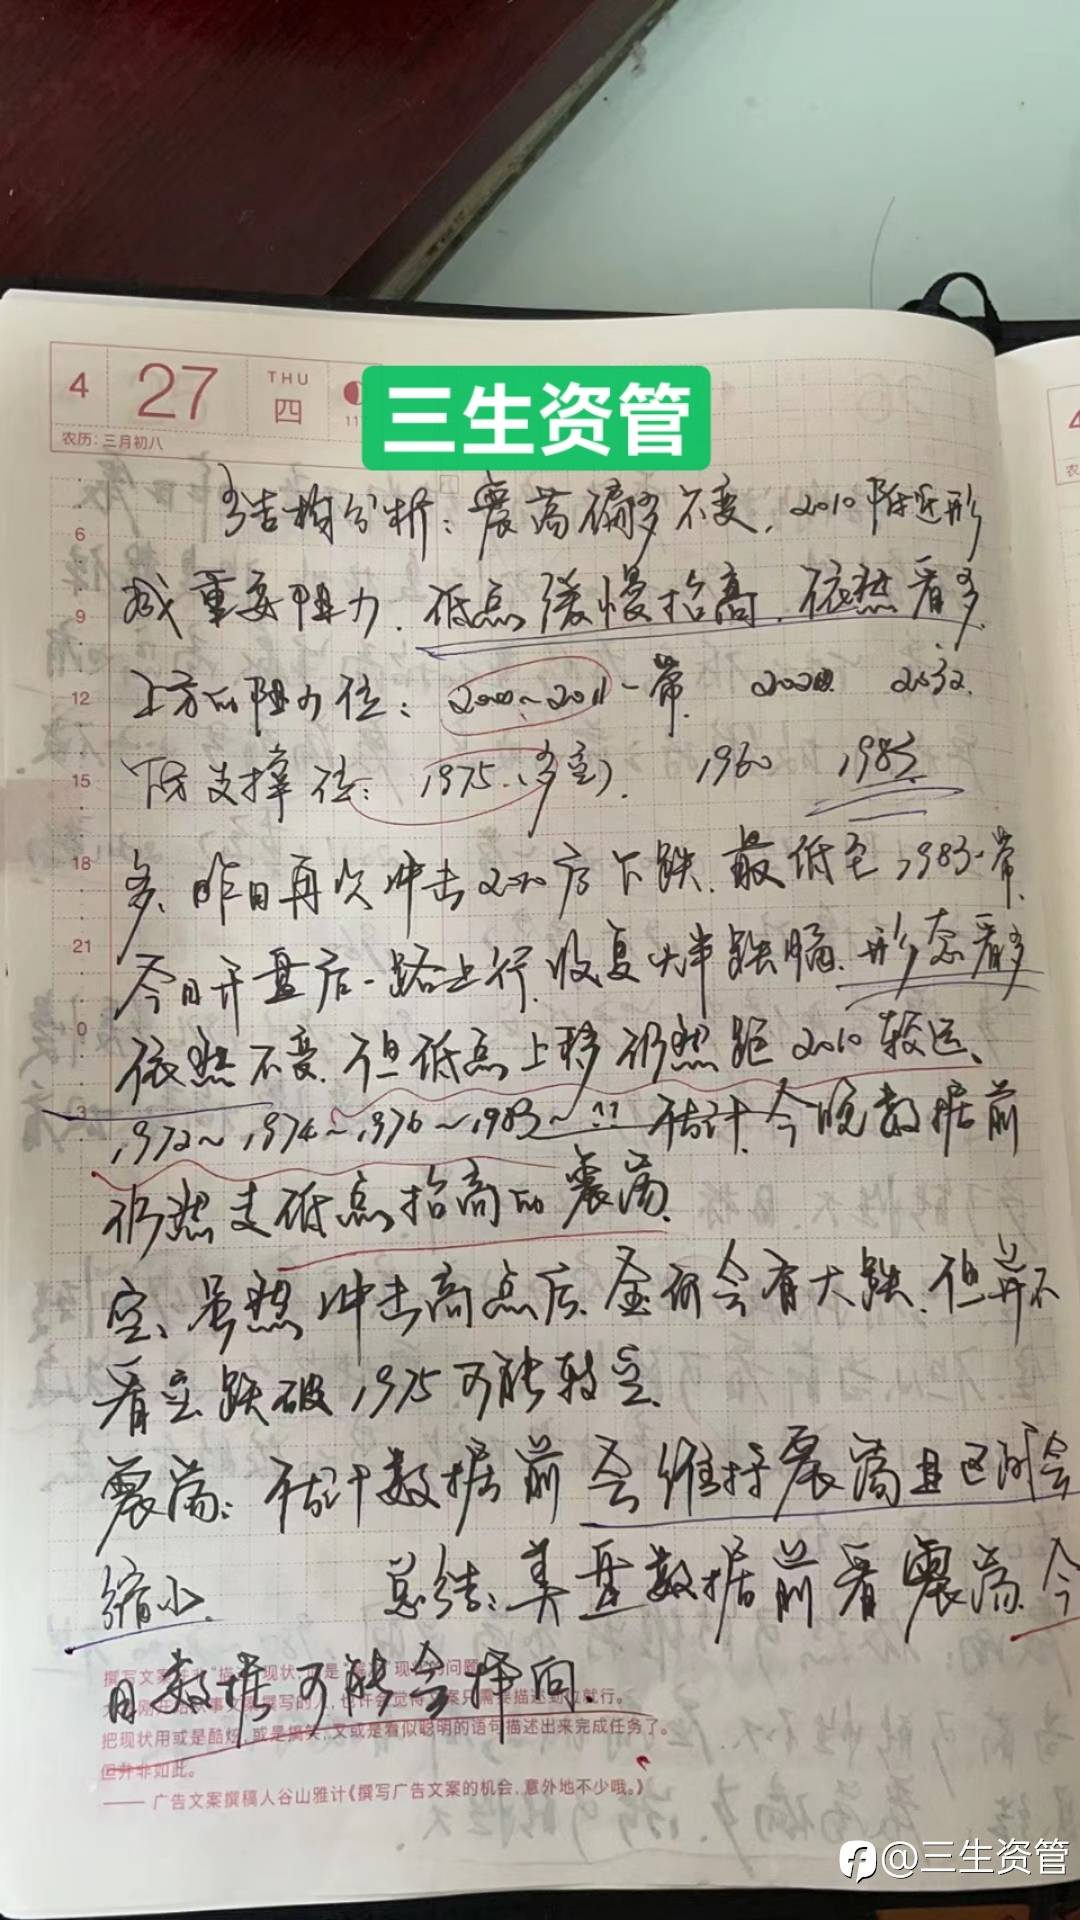 4 27 THU 四
11
农历：三月初八
三生资管
结构分析：震荡偏多不变，2010附近形
成重要阻力，低点缓慢抬高，依然看多
6
9
12
15
18
21
0
3
上方的阻力位：2000～2011一带 2032
下方支撑位：1975（多空） 1960 1983
多、昨日再次冲击 后下跌，最低至1983一带，
今日开盘后一路上行，收复大半跌幅，形态看多
依然不变，但低点上移仍然距2010较远、
1972～1974～1976～1983～?? 估计今晚数据前
仍然走低点抬高的震荡
空、虽然冲击高点后，金价会有大跌，但并不
看空，跌破1975可能转空
震荡：估计数据前会维持震荡且区间会
缩小 总结：美盘数据前看震荡，今
日数据可能会择向
撰写文案 现状， 现 的问题
把现状用或是酷炫，或是搞笑，又或是看似聪明的语句描述出来完成任务了。
但并非如此。
—— 广告文案撰稿人谷山雅计《撰写广告文案的机会，意外地不少哦。》
@三生资管